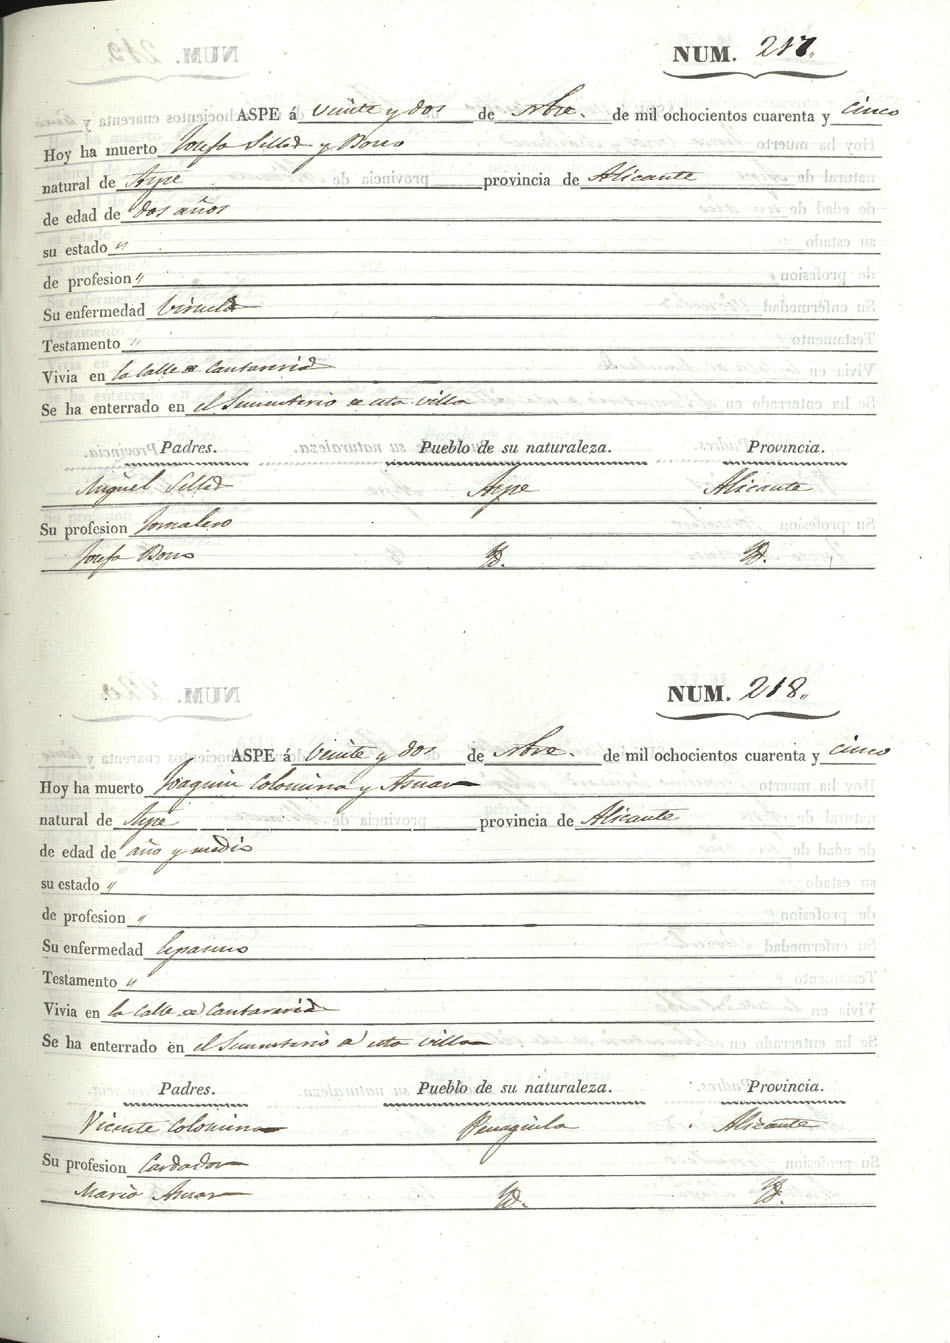 NUM. 217.
ASPE á veinte y dos de Nbre. de mil ochocientos cuarenta y cinco
Hoy ha muerto Josefa y
natural de Aspe provincia de Alicante
de edad de dos años
su estado "
de profesion "
Su enfermedad Viruela
Testamento "
Vivia en la calle de Cantareria
Se ha enterrado en el Sementerio de esta villa
Padres. Pueblo de su naturaleza. Provincia.
Miguel Aspe Alicante
Su profesion Jornalero
Josefa Yd. Yd.
NUM. 218.
ASPE á veinte y dos de Nbre. de mil ochocientos cuarenta y cinco
Hoy ha muerto Joaquin Colomina y Asnar
natural de Aspe provincia de Alicante
de edad de año y medio
su estado "
de profesion "
Su enfermedad
Testamento "
Vivia en la calle de Cantareria
Se ha enterrado en el Sementerio de esta villa
Padres. Pueblo de su naturaleza. Provincia.
Vicente Colomina Penaguila Alicante
Su profesion Cardador
Maria Asnar Yd. Yd.